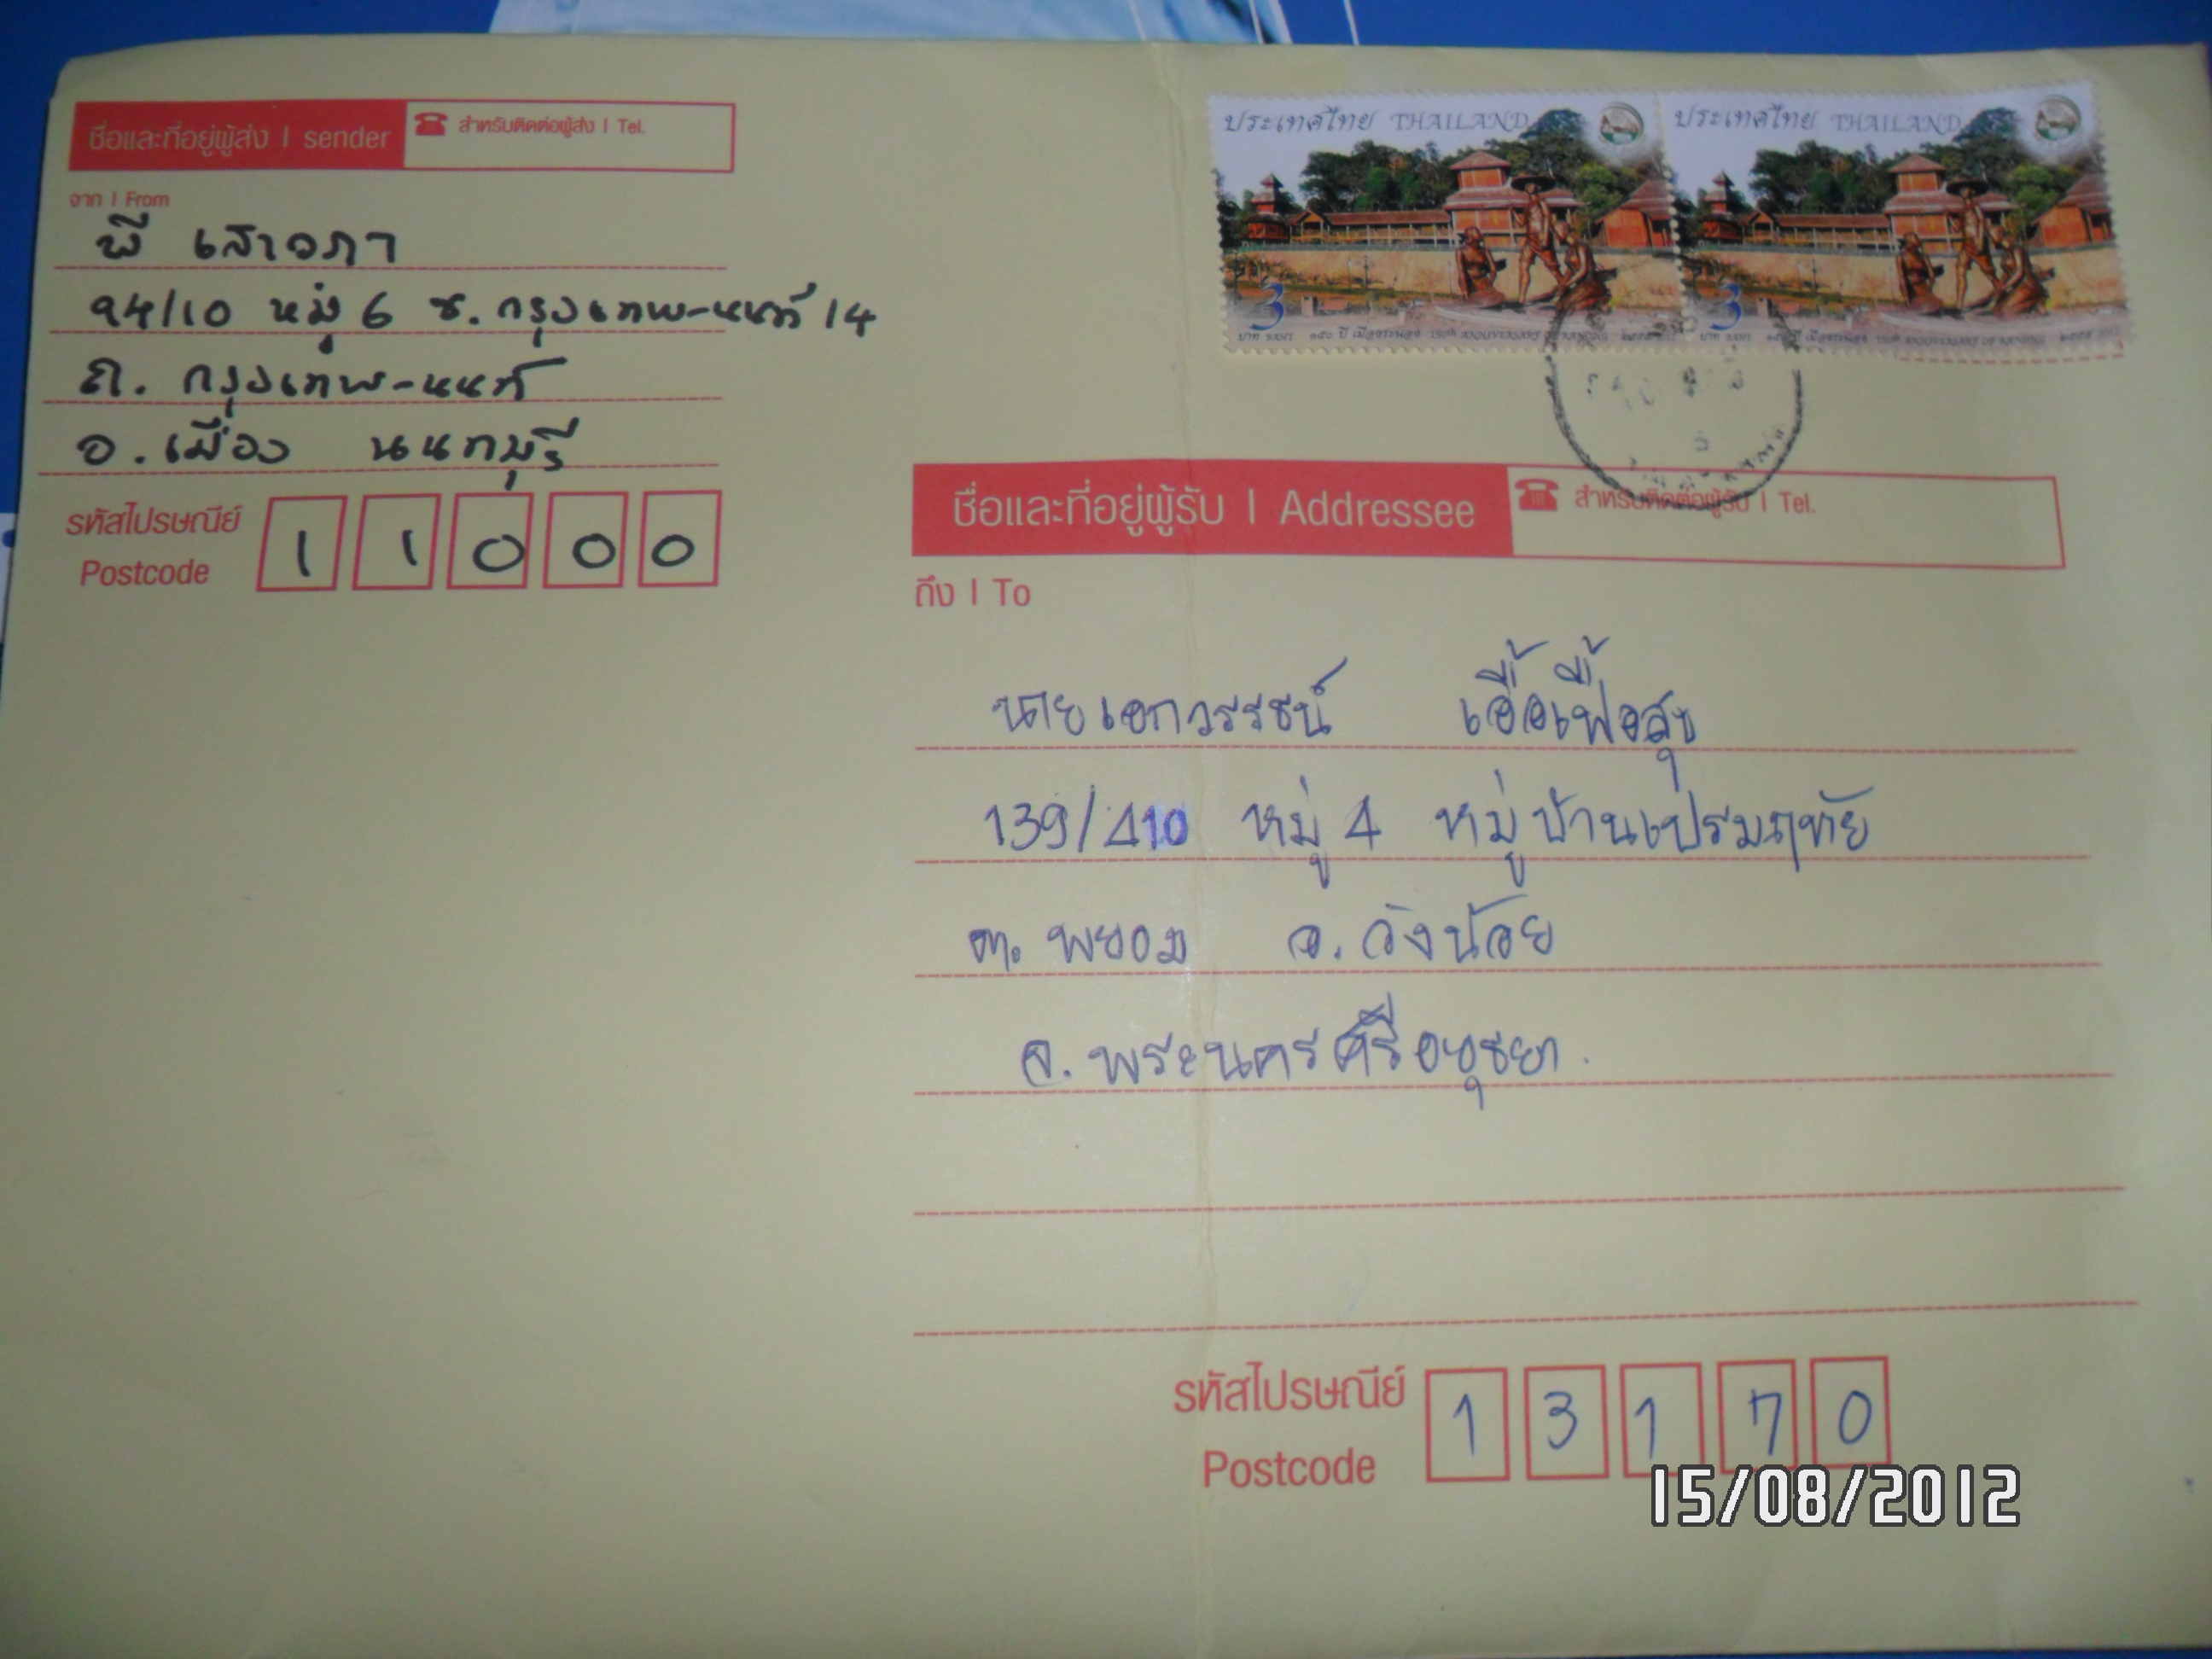 ชื่อและที่อยู่ผู้ส่ง | sender
สำหรับติดต่อผู้ส่ง | Tel.
จาก | From
พี่ เสาวภา
94/10 หมู่ 6 ซ. กรุงเทพ-นนท์ 14
ถ. กรุงเทพ-นนท์
อ. เมือง นนทบุรี
รหัสไปรษณีย์
Postcode
1 1 0 0 0
ประเทศไทย THAILAND
3
บาท BAHT
๑๕๐ ปี เมืองระนอง 150th ANNIVERSARY OF RANONG ๒๕๕๕
ประเทศไทย THAILAND
3
บาท BAHT
๑๕๐ ปี เมืองระนอง 150th ANNIVERSARY OF RANONG ๒๕๕๕ 2012
ชื่อและที่อยู่ผู้รับ | Addressee
สำหรับติดต่อผู้รับ | Tel.
ถึง | To
นายเอกวรรธน์ เอื้อเฟื้อสุข
139/410 หมู่ 4 หมู่บ้านเปรมฤทัย
ต. พยอม อ. วังน้อย
จ. พระนครศรีอยุธยา.
รหัสไปรษณีย์
Postcode
1 3 1 7 0
15/08/2012